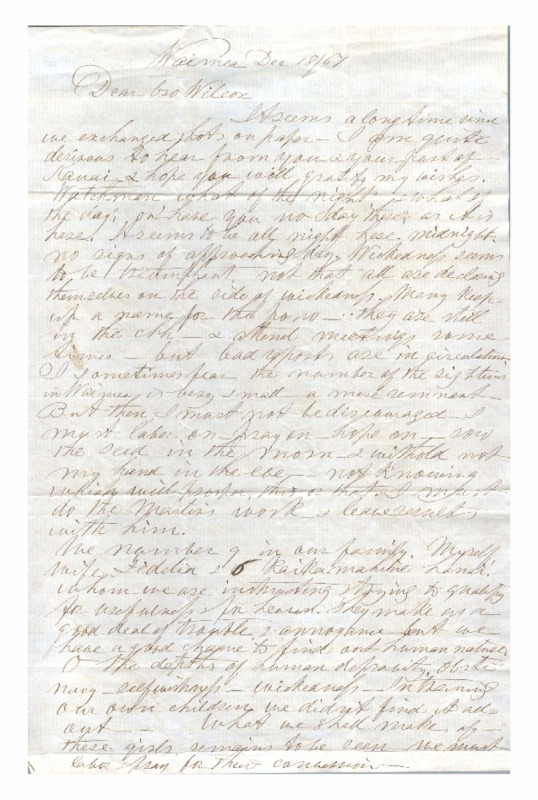 Waimea Dec 18/67
Dear bro Wilcox
It seems a long time since
we exchanged shots on paper - I am quite
desirous to hear from you & your part of
Kauai - & hope you will gratify my wishes.
Watchman what of the night - what of
the day; or have you no day there as it is
here. It seems to be all night here, midnight.
no signs of approaching day. Wickedness seems
to be triumphant not that all are declaring
themselves on the side of wickedness. Many keep
up a name for the pono - they are still
in the chh - & attend meetings some
times - but bad reports are in circulation
I sometimes fear the number of the righteous
in Waimea is very small - a mere remnant -
But then I must not be discouraged I
must labor on - pray on - hope on - sow
the seed in the morn & withold not
my hand in the eve - not knowing
which will prosper, this or that. I must
do the Masters work & leave results
with him.
We number 9 in our family. Myself
wife, Fidelia & 6 kaikamahine hanai.
whom we are instructing & trying to qualify
for usefulness & for heaven. They make us a
good deal of trouble & annoyance but we
have a good chance to find out human nature
O the depths of human depravity, obsti-
nacy - selfishness - wickedness - In training
our own children we didn't find it all
out - What we shall make of
these girls remains to be seen we must
labor & pray for their conversion -